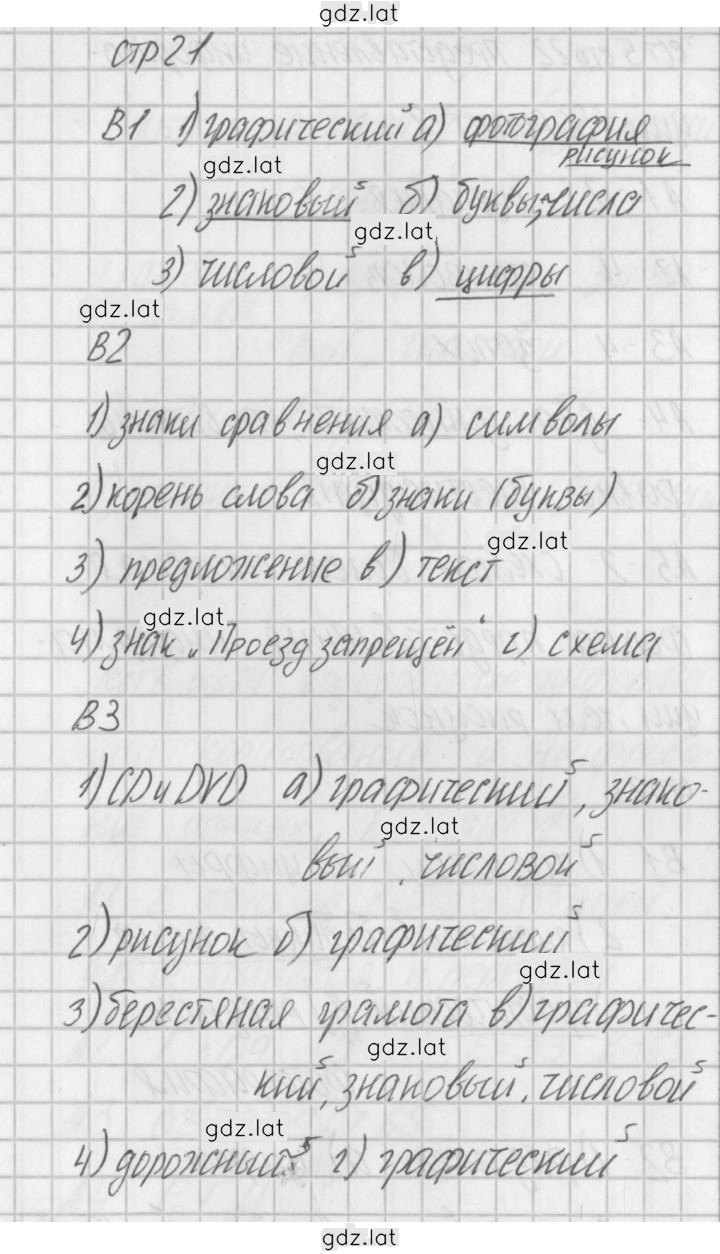 gdz.lat
стр 21
В1 1) графический а) фотография
рисунок
gdz.lat
2) знаковый б) буквы, числа
gdz.lat
3) числовой в) цифры
gdz.lat
В2
1) знаки сравнения а) символы
gdz.lat
2) корень слова б) знаки (буквы)
gdz.lat
3) предложение в) текст
gdz.lat
4) знак „Проезд запрещён“ г) схема
В3
1) CD и DVD а) графический, знако-
gdz.lat
вый, числовой
2) рисунок б) графический
gdz.lat
3) берестяная грамота в) графичес-
gdz.lat
кий, знаковый, числовой
gdz.lat
4) дорожный г) графический
gdz.lat